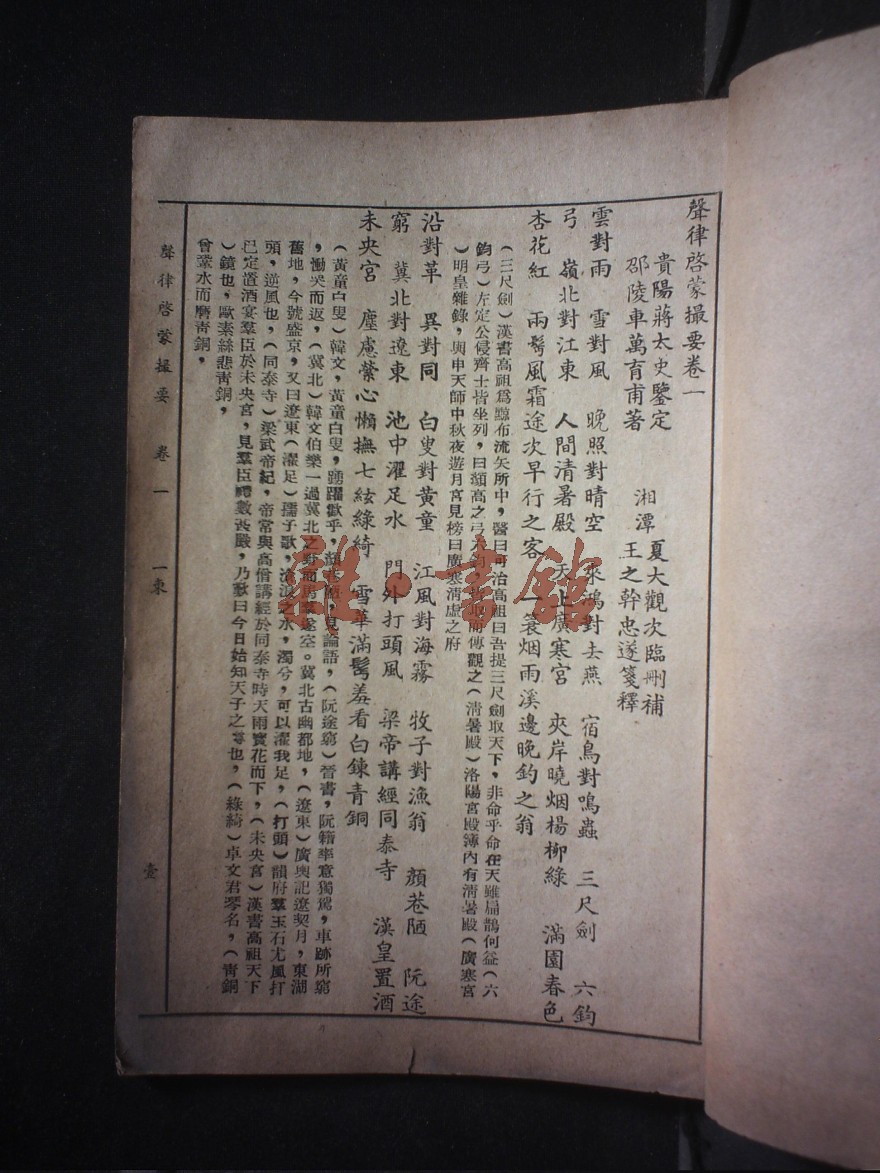 聲律啓蒙撮要卷一
貴陽蔣太史鑒定　湘潭夏大觀次臨刪補
邵陵車萬育甫著　王之幹忠遂箋釋
雲對雨　雪對風　晚照對晴空　來鴻對去燕　宿鳥對鳴蟲　三尺劍　六鈞
弓　嶺北對江東　人間清暑殿　天上廣寒宮　夾岸曉烟楊柳綠　滿園春色
杏花紅　兩鬢風霜途次早行之客　一蓑烟雨溪邊晚釣之翁
（三尺劍）漢書高祖爲黥布流矢所中，醫曰可治高祖曰吾提三尺劍取天下，非命乎命在天雖扁鵲何益（六
鈞弓）左定公侵齊士皆坐列，曰顏高之弓六鈞，皆取而傳觀之（清暑殿）洛陽宮殿簿內有清暑殿（廣寒宮
）明皇雜錄，與申天師中秋夜遊月宮見榜曰廣寒清虛之府
沿對革　異對同　白叟對黃童　江風對海霧　牧子對漁翁　顏巷陋　阮途
窮　冀北對遼東　池中濯足水　門外打頭風　梁帝講經同泰寺　漢皇置酒
未央宮　塵慮縈心懶撫七絃綠綺　雪華滿鬢羞看白鍊青銅
（黃童白叟）韓文，黃童白叟，踴躍歡乎，顏巷陋，見論語，（阮途窮）晉書，阮籍率意獨駕，車跡所窮
，慟哭而返，（冀北）韓文伯樂一過冀北之野而馬羣遂空。冀北古幽都地，（遼東）廣輿記遼契月，東湖
舊地，今號盛京，又曰遼東（濯足）孺子歌，滄浪之水，濁兮，可以濯我足，（打頭）韻府羣玉石尤風打
頭，逆風也，（同泰寺）梁武帝紀，帝常與高僧講經於同泰寺時天雨寶花而下，（未央宮）漢書高祖天下
已定置酒宴羣臣於未央宮，見羣臣禮數森嚴，乃歎曰今日始知天子之尊也，（綠綺）卓文君琴名，（青銅
）鏡也，歐素絲悲青銅，
曾蒙水而磨青銅，
聲律啓蒙撮要　卷一　一東　壹
雜·書館